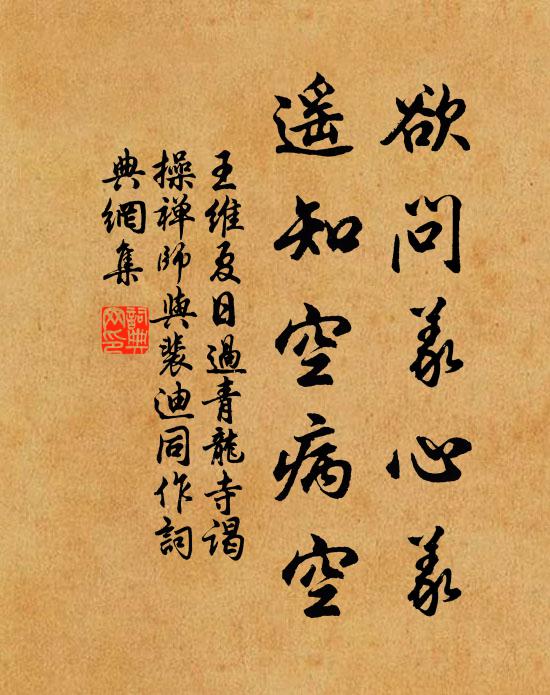 欲问義心義
遥知空病空
王維夏日過青龍寺謁
操禅師與裴迪同作詞
典網集
詞典網印